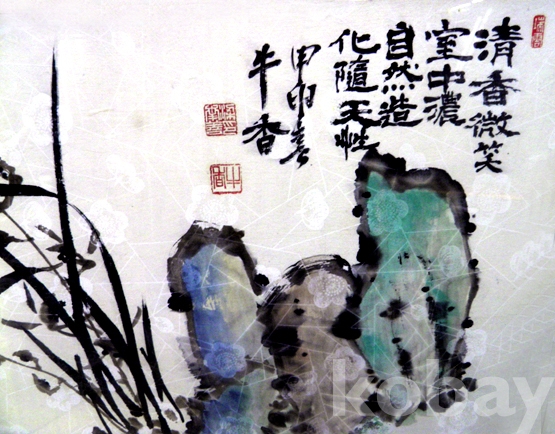 清香微笑
室中濃
自然造
化隨天性
甲申春
牛香
kobay